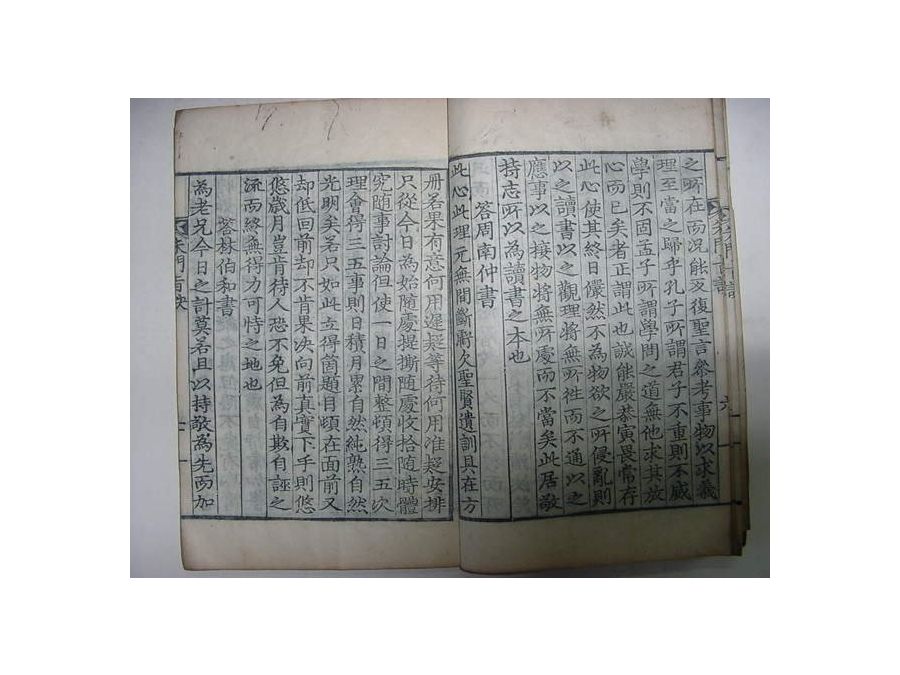 之所在而况能反復聖言參考事物以求義
理至當之歸乎孔子所謂君子不重則不威
學則不固孟子所謂學問之道無他求其放
心而已矣者正謂此也誠能嚴恭寅畏常存
此心使其終日儼然不為物欲之所侵亂則
以之讀書以之觀理將無所徃而不通以之
應事以之接物將無所處而不當矣此居敬
持志所以為讀書之本也
答周南仲書
此心此理元無間斷虧欠聖賢遺訓具在方
册若果有意何用遲疑等待何用准擬安排
只從今日為始随處提撕随處收拾随時體
究随事討論但使一日之間整頓得三五次
理會得三五事則日積月累自然純熟自然
光明矣若只如此立得箇題目頓在面前又
却低回前却不肯果决向前真實下手則悠
悠歲月豈肯待人恐不免但為自欺自誣之
流而終無得力可恃之地也
答林伯和書
為老兄今日之計莫若且以持敬為先而加
朱門旨訣